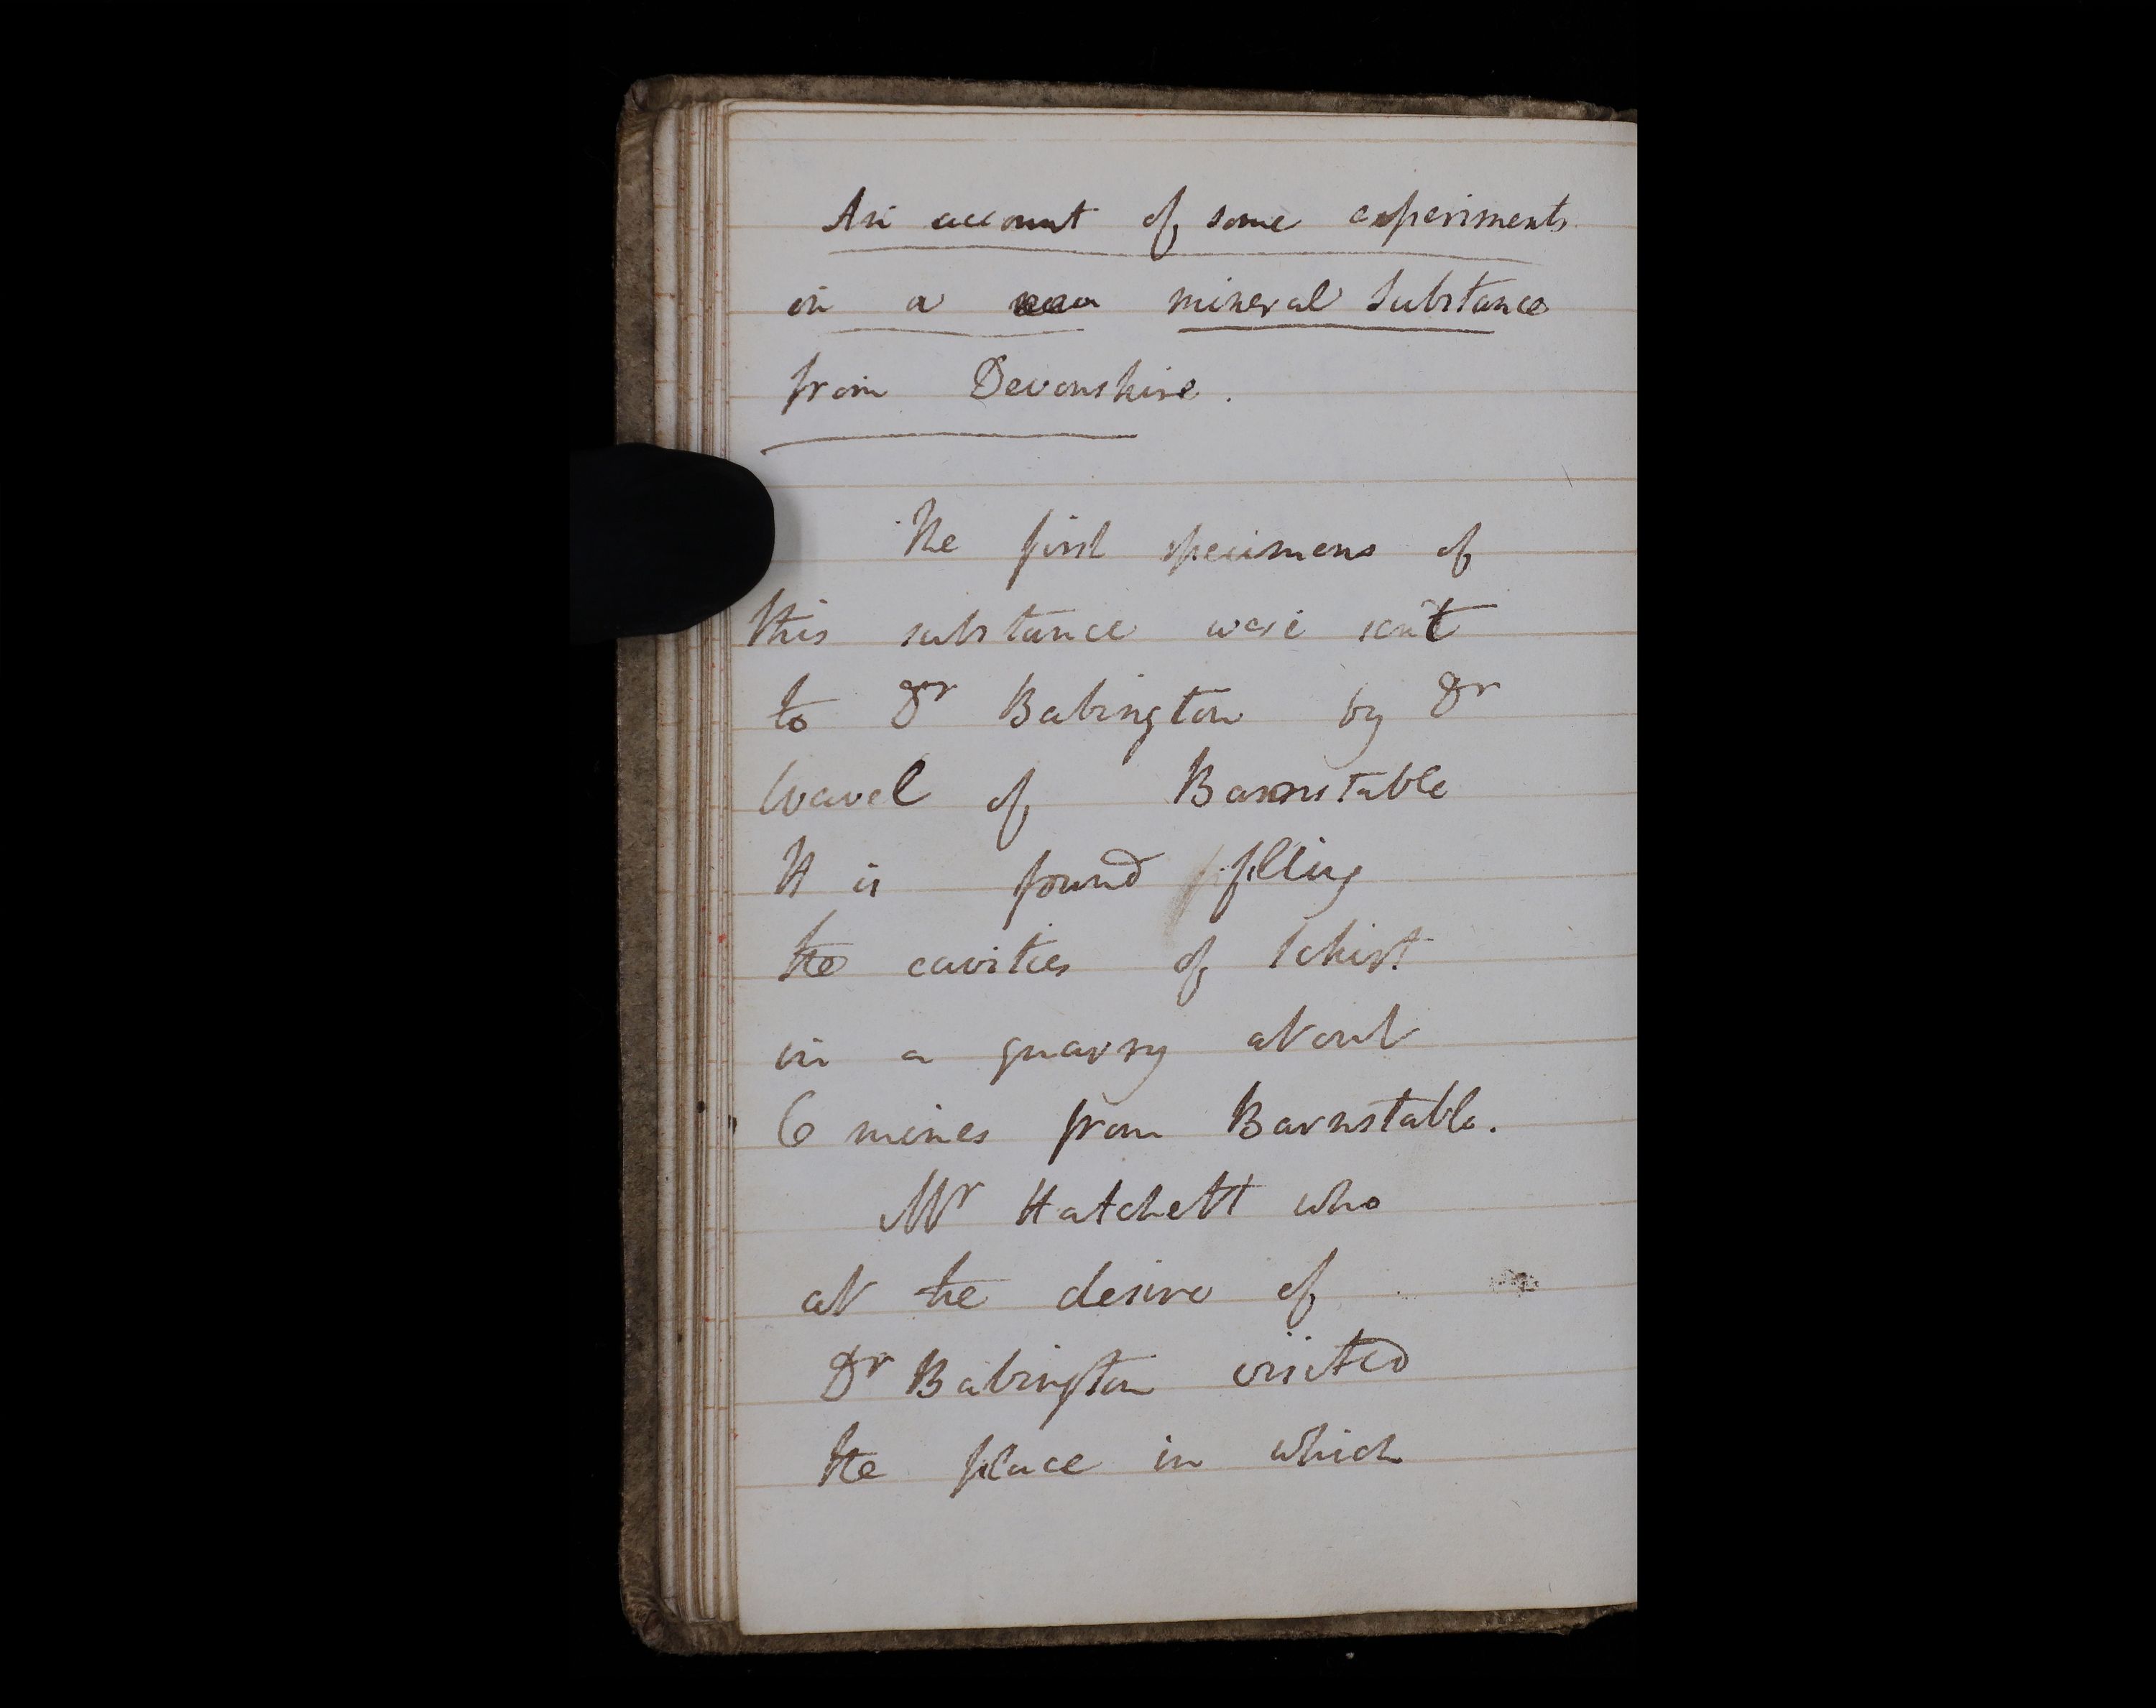 An account of some experiments
on a mineral substance
from Devonshire.
The first specimens of
this substance were sent
to Dr Babington by Dr
Wavel of Barnstable
It is found filling
the cavities of Schist
in a quarry about
6 mines from Barnstable.
Mr Hatchett who
at the desire of
Dr Babington visited
the place in which